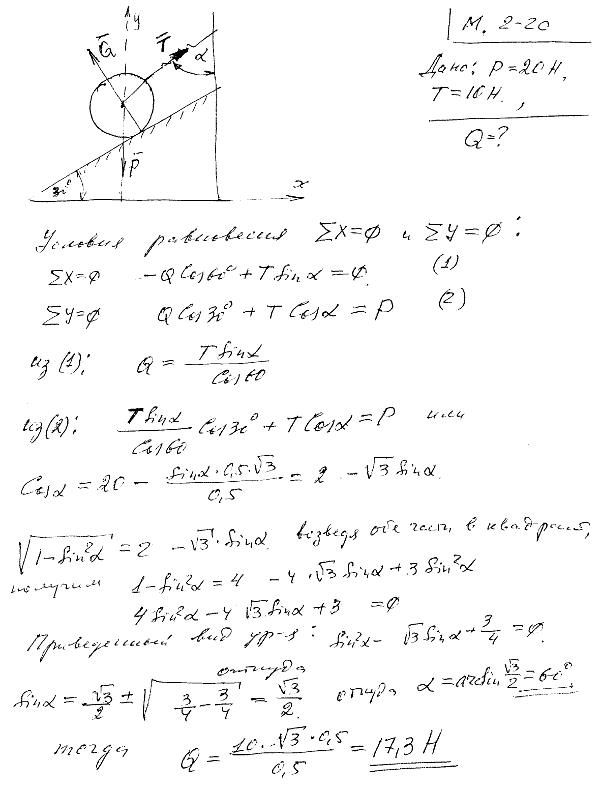 y
Q̄ T̄ α
P̄
30°
x
М. 2-20
Дано: P=20Н,
T=10Н.,
Q=?
Условия равновесия ΣX=∅ и ΣY=∅:
ΣX=∅ -Q Cos60° + T Sinα = ∅. (1)
ΣY=∅ Q Cos30° + T Cosα = P (2)
из (1): Q = T Sinα / Cos60
из (2): T Sinα / Cos60 Cos30° + T Cosα = P или
Cosα = 20 - Sinα · 0,5 · √3 / 0,5 = 2 - √3 Sinα.
√1-Sin²α = 2 - √3 · Sinα. возведя обе части в квадрат,
получим 1-Sin²α = 4 - 4 · √3 Sinα + 3 Sin²α
4 Sin²α - 4 √3 Sinα + 3 = ∅
Приведенный вид ур-я: Sin²α - √3 Sinα + 3/4 = ∅.
откуда
Sinα = √3/2 ± √3/4 - 3/4 = √3/2. откуда α = arcSin √3/2 = 60°.
тогда Q = 10 · √3 · 0,5 / 0,5 = 17,3 Н